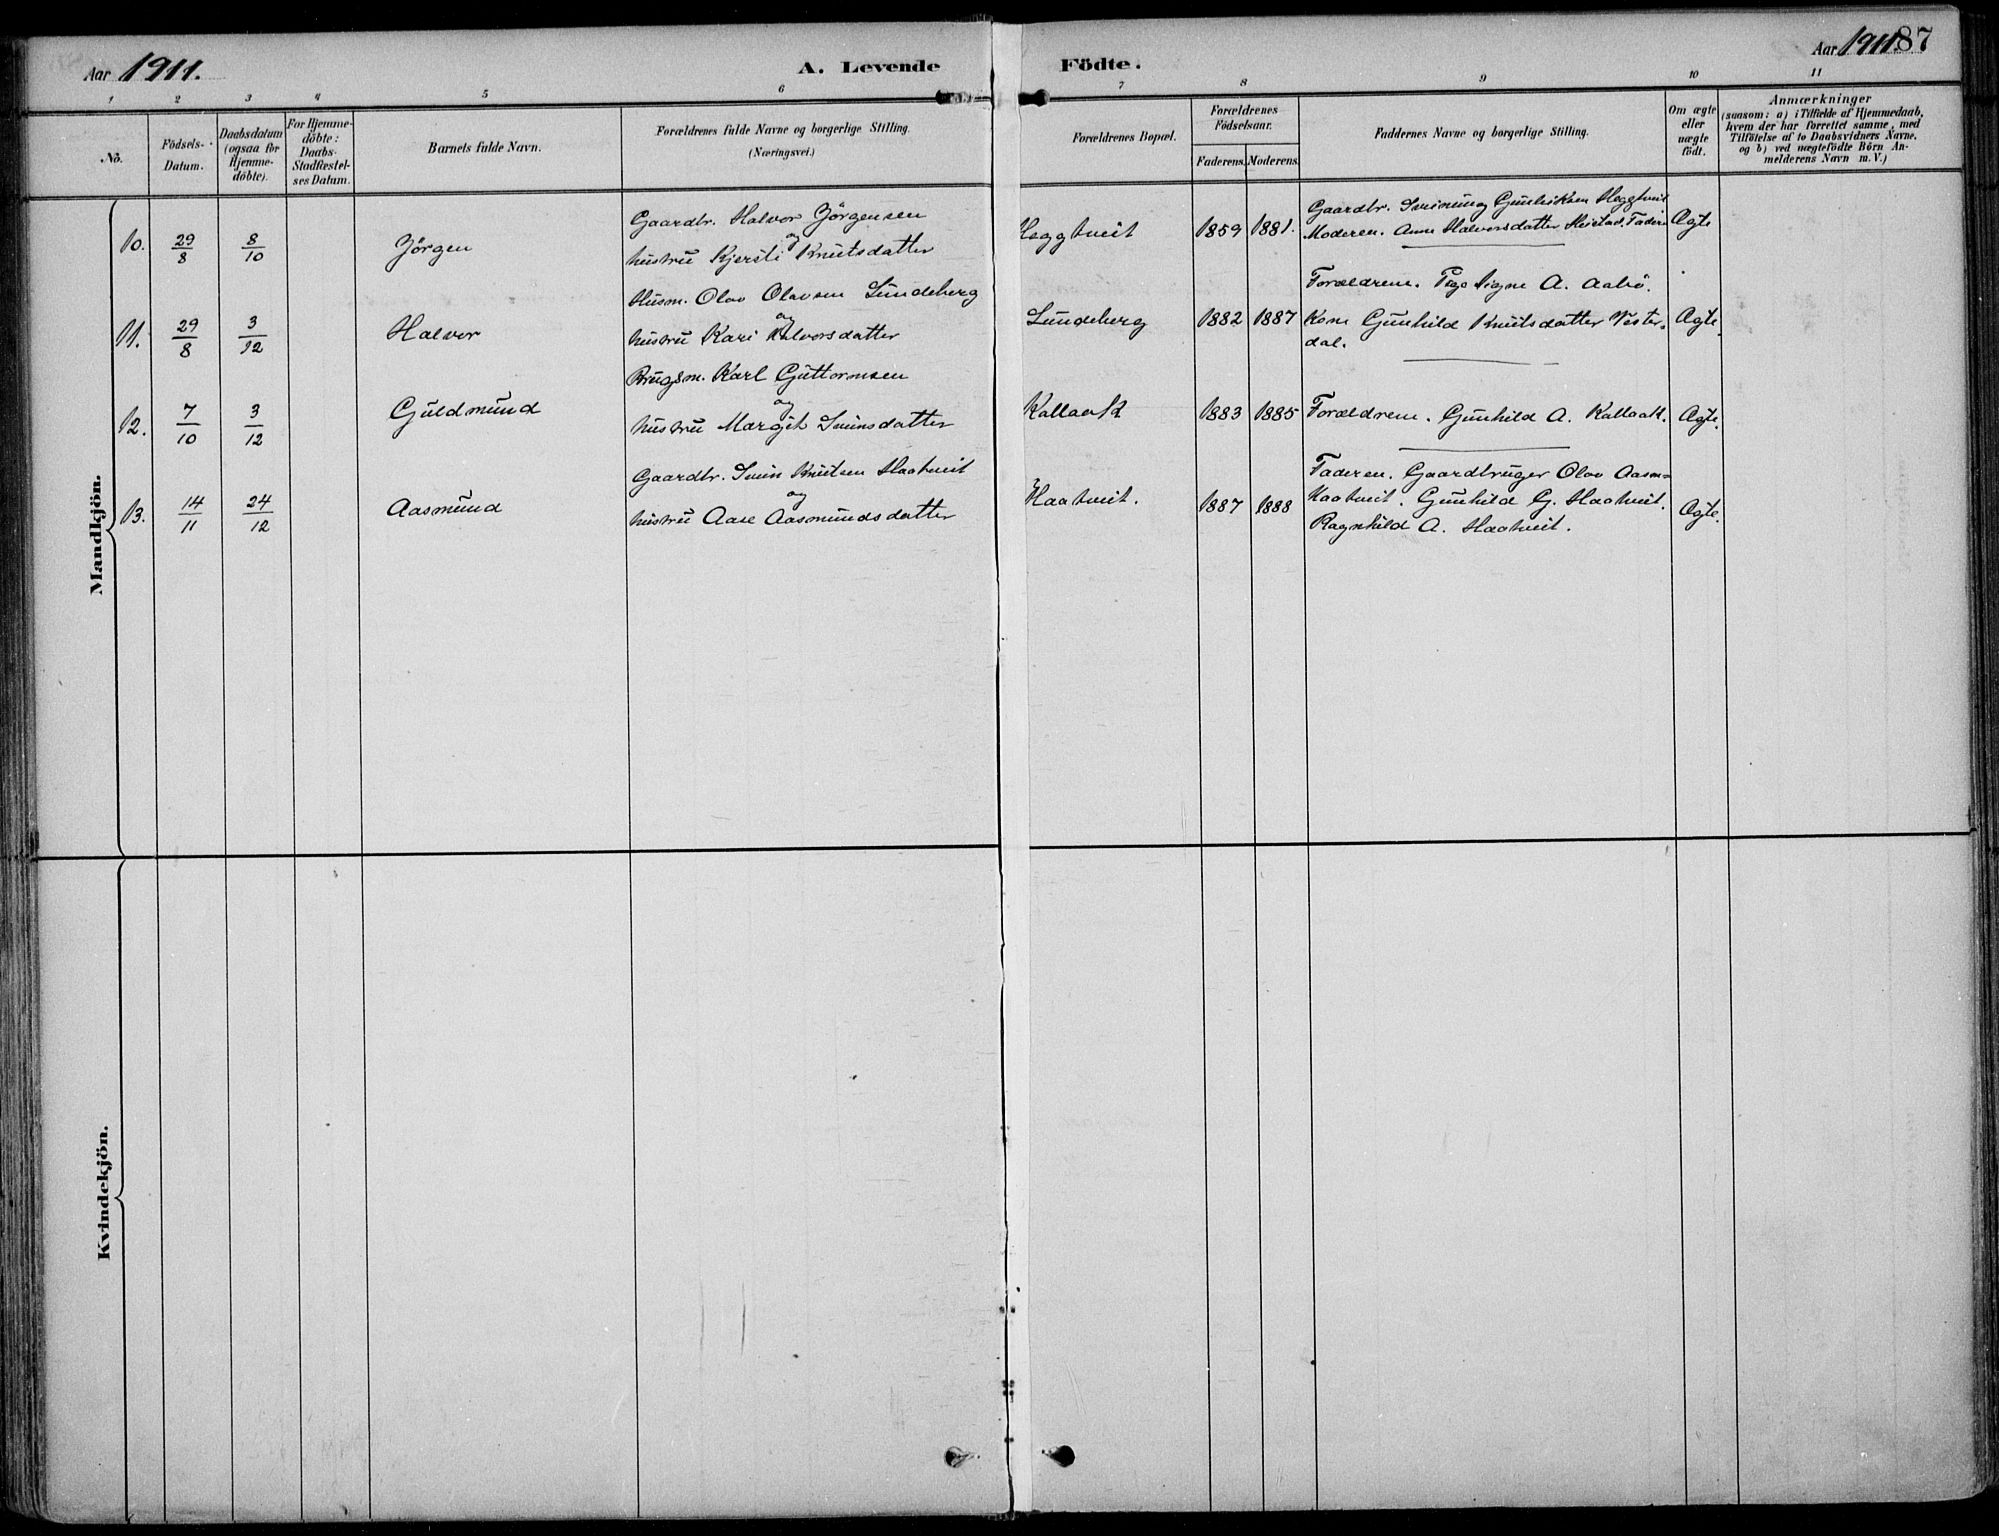 Aar 1911.
A. Levende
Födte.
Aar 1911.
87
1 2 3 4 5 6 7 8 9 10 11
No.
Födsels-
Datum.
Daabsdatum
(ogsaa for
Hjemme-
döbte).
For Hjemme-
döbte:
Daabs-
Stadfæstel-
ses Datum.
Barnets fulde Navn.
Forældrenes fulde Navne og borgerlige Stilling.
(Næringsvei.)
Forældrenes Bopæl.
Forældrenes
Födselsaar.
Faderens.
Moderens.
Faddernes Navne og borgerlige Stilling.
Om ægte
eller
uægte
födt.
Anmærkninger
(saasom: a) i Tilfælde af Hjemmedaab,
hvem der har forrettet samme, med
Tilföielse af to Daabsvidners Navne,
og b) ved uægtefödte Börn An-
melderens Navn m. V.)
Mandkjön.
10.
29/8
8/10
Jörgen
Gaardbr. Halvor Jörgensen
og
hustru Kjersti Knutsdatter
Heggtveit
1859
1881.
Gaardbr. Sveinung Gunleiksen Heggtveit
Moderen. Anne Halvorsdatter Heistad. Fader
Ægte
11.
29/8
3/12
Halvor
Husm. Olav Olavsen Lundeberg
og
hustru Kari Halvorsdatter
Lundeberg
1882
1887
Forældrene. Pige Signe A. Aabö.
Kone Gunhild Knutsdatter Vester-
dal.
Ægte.
12.
7/10
3/12
Guldmund
Brugsm. Karl Guttormsen
og
hustru Margit Sveinsdatter
Kallaak
1883
1885
Forældrene. Gunhild A. Kallaak.
Ægte.
13.
14/11
24/12
Aasmund
Gaardbr. Svein Knutsen Haatveit
og
hustru Aase Aasmundsdatter
Haatveit.
1887
1888
Faderen. Gaardbruger Olav Aasm-
Haatveit. Gunhild G. Haatveit.
Ragnhild A. Haatveit.
Ægte.
Kvindekjön.